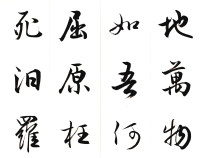 地萬物
如吾何
屈原枉
死汨羅